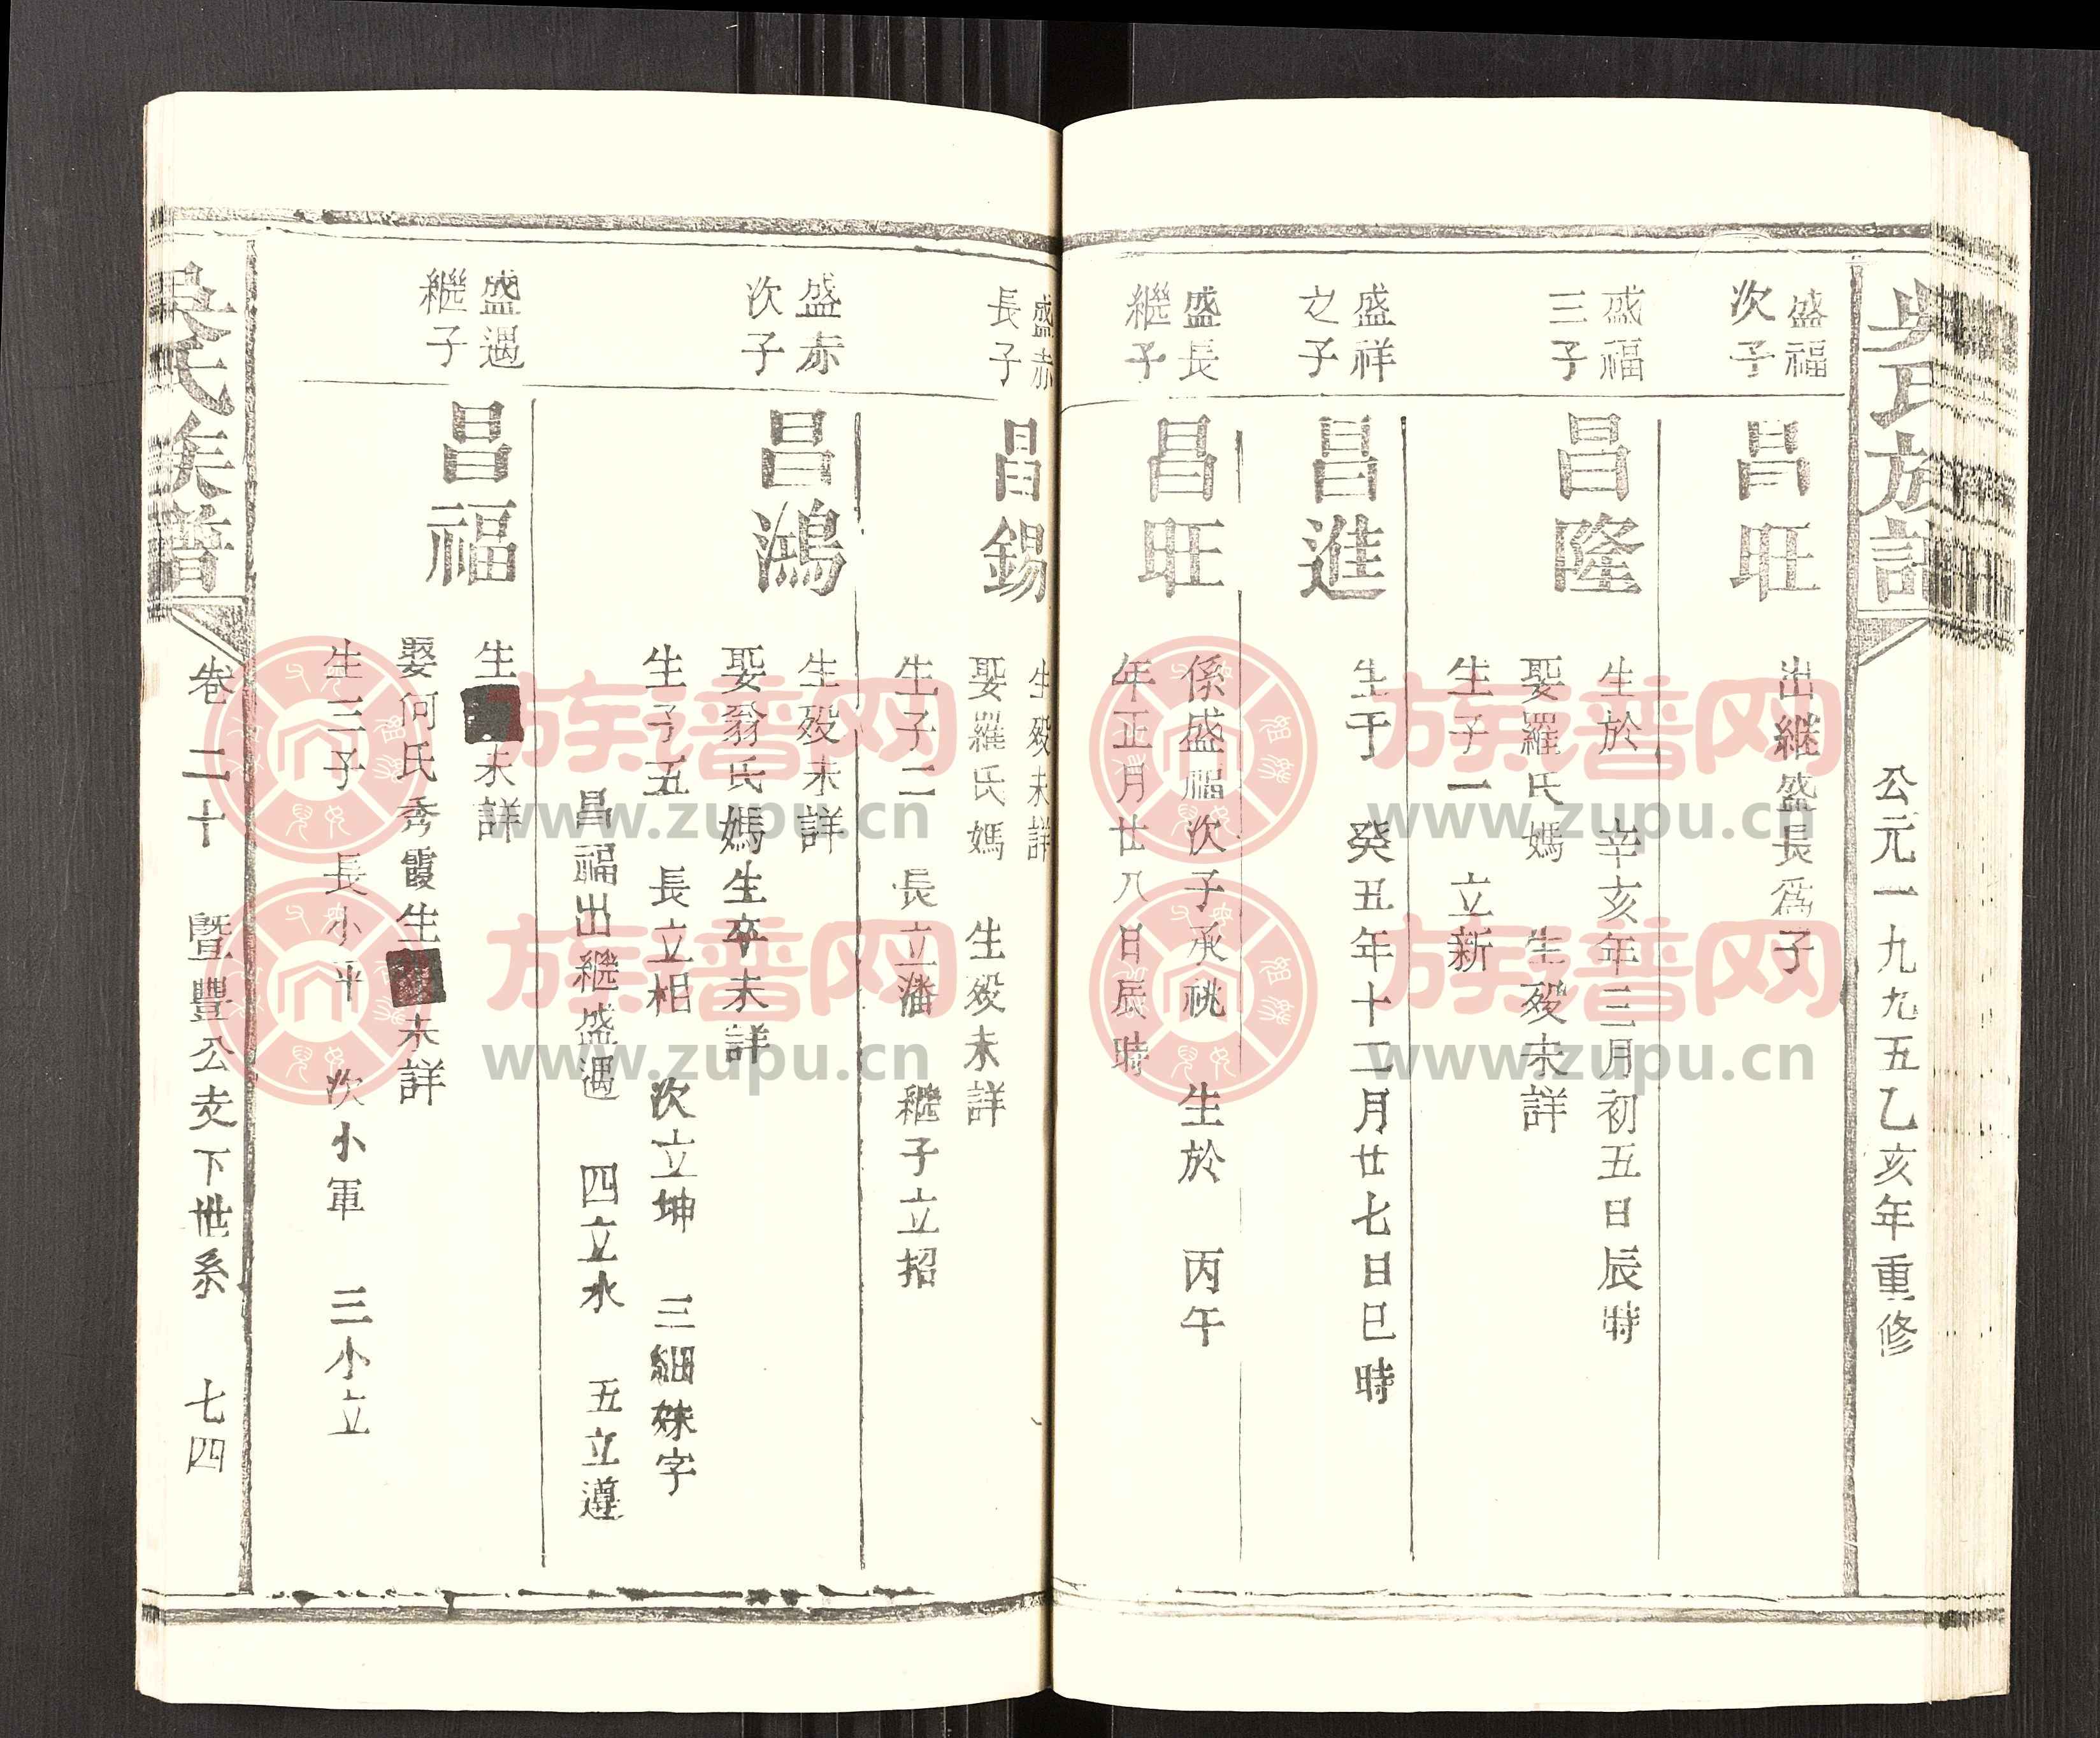 吳氏族譜
公元一九九五乙亥年重修
盛福
次子
昌旺
出繼盛長爲子
盛福
三子
昌隆
生於 辛亥年三月初五日辰時
娶羅氏媽 生歿未詳
生子一 立新
盛祥
之子
昌進
生于 癸丑年十二月廿七日巳時
盛長
繼子
昌旺
係盛福次子承祧 生於 丙午
年正月廿八日辰時
盛赤
長子
昌錫
生歿未詳
娶羅氏媽 生歿未詳
生子二 長立潘 繼子立招
盛赤
次子
昌鴻
生歿未詳
娶翁氏媽生卒未詳
生子五 長立相 次立坤 三細妹字
昌福出繼盛遇 四立水 五立遵
盛遇
繼子
昌福
生 未詳
娶何氏秀霞生 未詳
生三子 長小平 次小軍 三小立
吳氏族譜
卷二十 暨豐公支下世系 七四
族谱网
www.zupu.cn
族谱网
www.zupu.cn
族谱网
www.zupu.cn
族谱网
www.zupu.cn